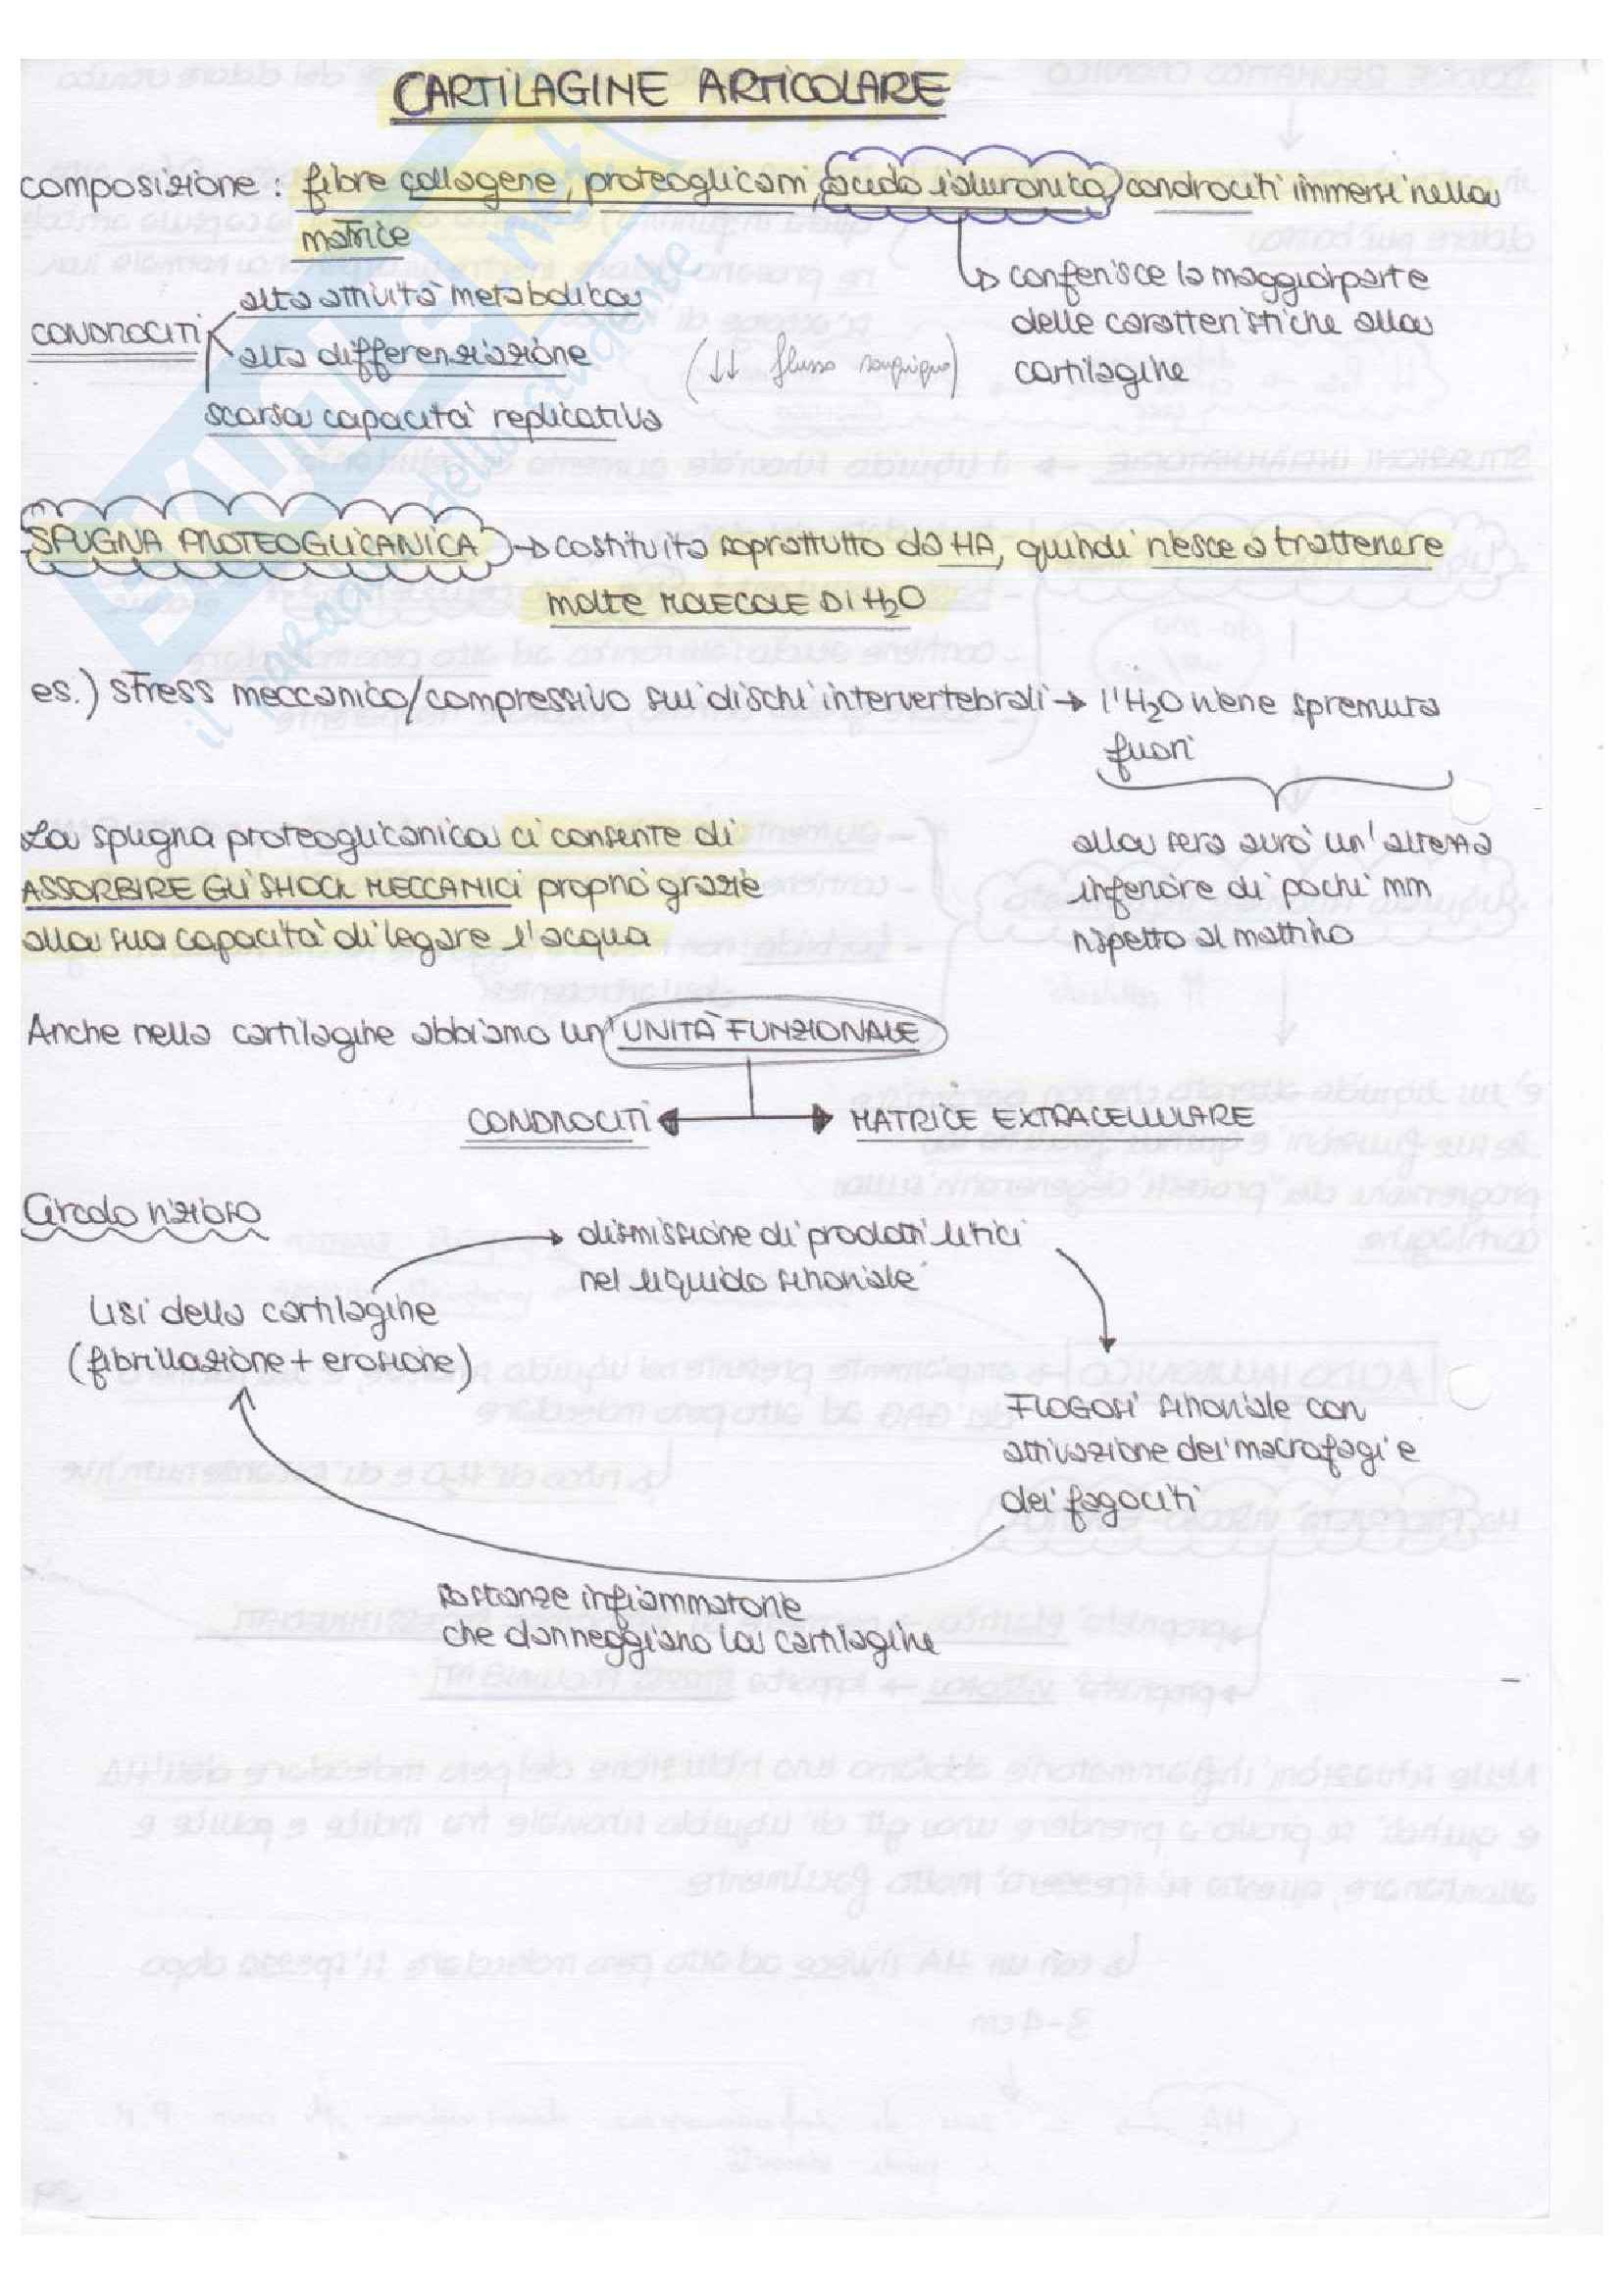 CARTILAGINE ARTICOLARE
composizione: fibre collagene, proteoglicani, acido ialuronico, condrociti immersi nella
matrice
↳ conferisce la maggior parte
delle caratteristiche alla
cartilagine
CONDROCITI
alta attività metabolica
alta differenziazione
scarsa capacità replicativa
(↓↓ flusso sanguigno)
SPUGNA PROTEOGLICANICA → costituita soprattutto da HA, quindi riesce a trattenere
molte MOLECOLE DI H2O
es.) stress meccanico/compressivo sui dischi intervertebrali → l'H2O viene spremuta
fuori
alla sera avrò un'altezza
inferiore di pochi mm
rispetto al mattino
La spugna proteoglicanica ci consente di
ASSORBIRE GLI SHOCK MECCANICI proprio grazie
alla sua capacità di legare l'acqua
Anche nella cartilagine abbiamo un'UNITÀ FUNZIONALE
CONDROCITI ← → MATRICE EXTRACELLULARE
Circolo vizioso
dismissione di prodotti litici
nel liquido sinoviale
Lisi della cartilagine
(fibrillazione + erosione)
FLOGOSI sinoviale con
attivazione dei macrofagi e
dei fagociti
sostanze infiammatorie
che danneggiano la cartilagine
SKUOLA.net
il paradiso dello studente